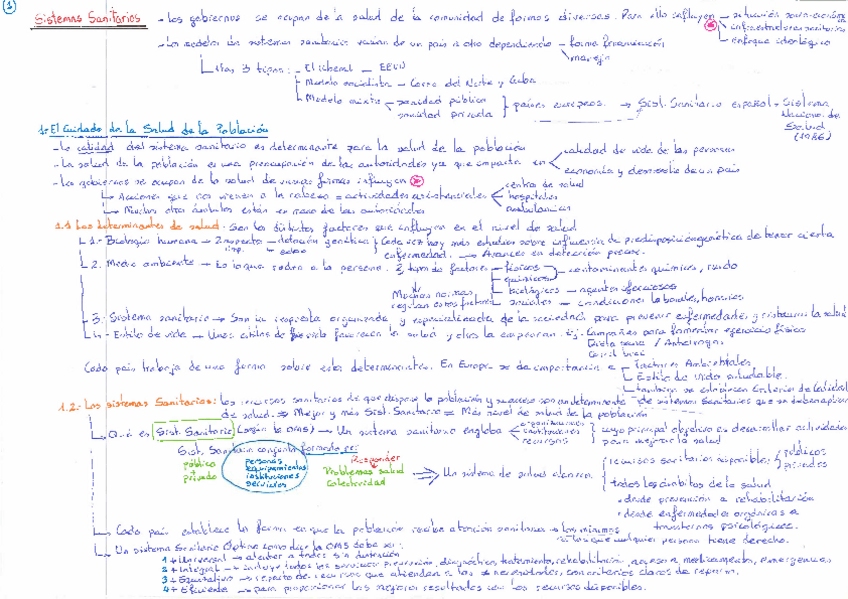 1
Sistemas Sanitarios - Los gobiernos se ocupan de a salud de la comunidad de formas diversas. Para ello influyen - situación socio-económ
infraestructuras sanitarias
enfoque ideológico
- Los modelos de sistemas sanitarios varían de un país a otro dependiendo - forma financiación
manejo
Hay 3 tipos: - El liberal - EEUU
- Modelo socialista - Corea del Norte y Cuba
- Modelo mixto - sanidad pública
sanidad privada } países europeos. → Sist. Sanitario español - Sistema
Nacional de
Salud
(1986)
1.- El Cuidado de la Salud de la Población
- La calidad del sistema sanitario es determinante para la salud de la población
- La salud de la población es una preocupación de las autoridades ya que impacta en calidad de vida de las personas
economía y desarrollo de un país
- Los gobiernos se ocupan de la salud de varias formas influyen
Acciones que nos vienen a la cabeza = actividades asistenciales centro de salud
hospitales
ambulancias
Muchos otros ámbitos están en mano de las autoridades
1.1 Los determinantes de salud: Son los distintos factores que influyen en el nivel de salud
1.- Biología humana → Impacto - dotación genética
edad
Cada vez hay más estudios sobre influencia de predisposición genética de tener cierta
enfermedad. → Avances en detección precoz.
2. Medio ambiente → Es lo que rodea a la persona. 2 tipos de factores - físicos
químicos - contaminantes químicos, ruido
Biológicos - agentes infecciosos
sociales - condiciones laborales, horarios
Muchas normas
regulan estos factores
3.- Sistema sanitario → Son la respuesta organizada y especializada de la sociedad para prevenir enfermedades y restaurar la salud
4.- Estilo de vida → Unos estilos de vida favorecen la salud y otros la empeoran. Ej. Campañas para fomentar ejercicio físico
Dieta sana / Antidrogas
Cada país trabaja de una forma sobre estos determinantes. En Europa se da importancia a factores Ambientales
Estilo de vida saludable.
también se establecen Criterios de Calidad
de sistemas Sanitarios que se deben aplicar
1.2.- Los sistemas Sanitarios: Los recursos sanitarios de que dispone la población y su acceso son un determinante
de salud. ⇒ Mejor y más Sist. Sanitario = Más nivel de salud de la población
Qué es Sist. Sanitario (según la OMS) → Un sistema sanitario engloba organizaciones
instituciones
recursos } cuyo principal objetivo es desarrollar actividades
para mejorar la salud
Sist. Sanitario conjunto formado por:
público
+
privado
personas
equipamientos
instituciones
servicios
Responder
Problemas salud
Colectividad
⇒ Un sistema de salud abarca recursos sanitarios disponibles públicos
privados
todos los ámbitos de la salud
• desde prevención a rehabilitación
• desde enfermedades orgánicas a
trastornos psicológicos.
Cada país establece la forma en que la población reciba atención sanitaria → los mínimos
a los que cualquier persona tiene derecho.
Un sistema Sanitario Óptimo como dice la OMS debe ser:
1 + Universal → atender a todos sin distinción
2 + Integral → incluye todos los servicios prevención, diagnóstico, tratamiento, rehabilitación, acceso a medicamentos, emergencias
3 + Equitativo → reparto de recursos que atiendan a las necesidades, con criterios claros de reparto.
4 + Eficiente → para proporcionar los mejores resultados con los recursos disponibles.